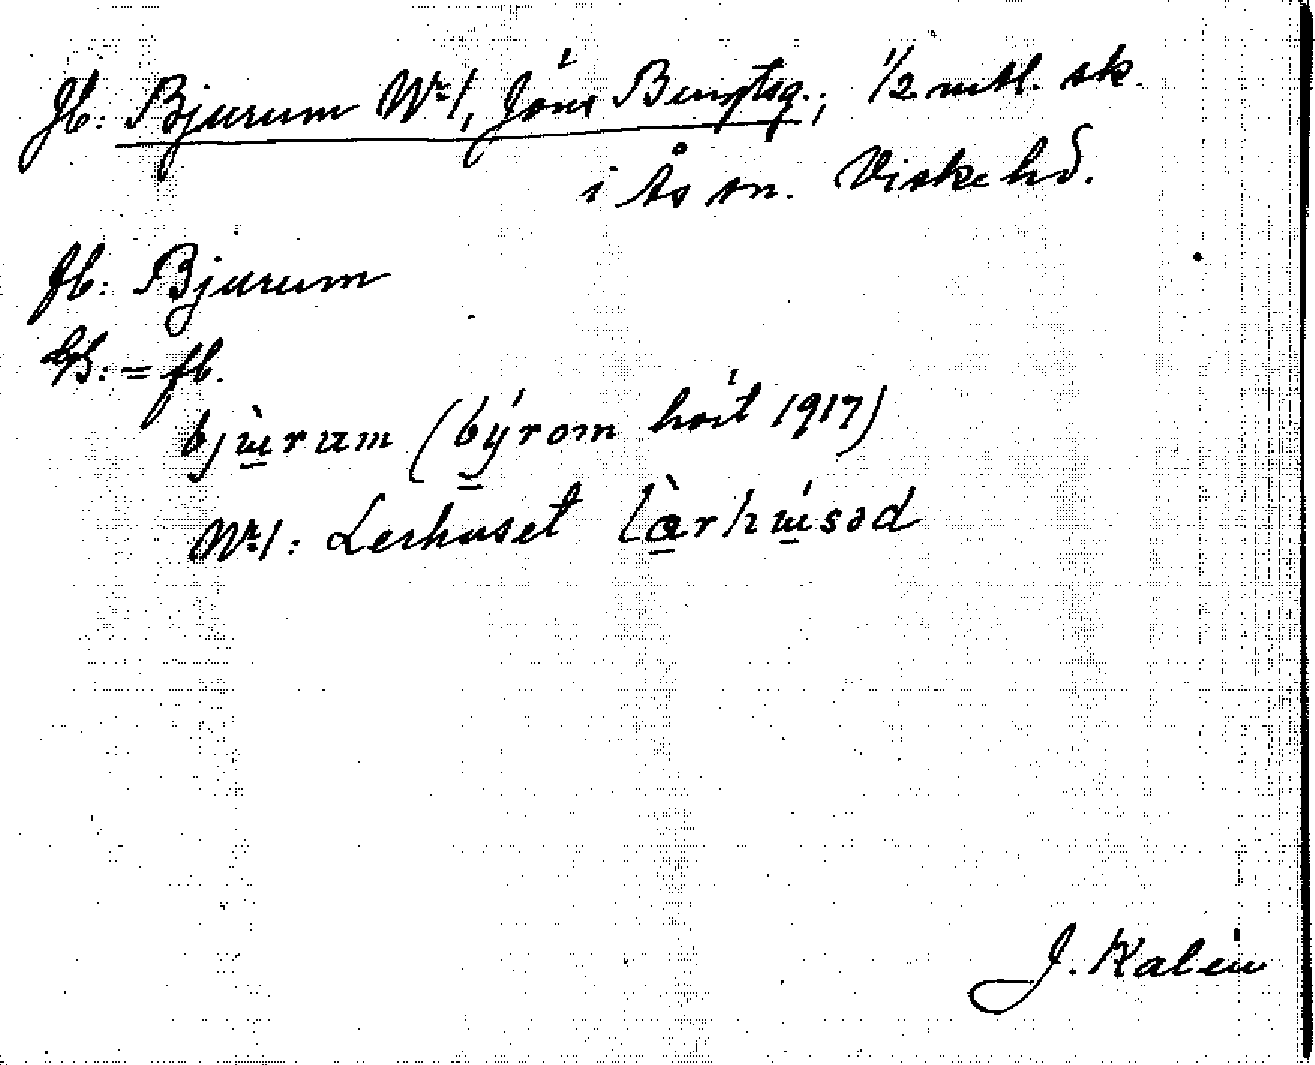 Jb: Bjurum Nr 1, Jöns Bengtsg.; 1/2 mtl. sk.
i Ås sn. Viske hd.
fb: Bjurum
Gs: = fb.
bjùrum (býrom hört 1917)
Nr 1: Lerhuset làrhúsəd
J. Kalén